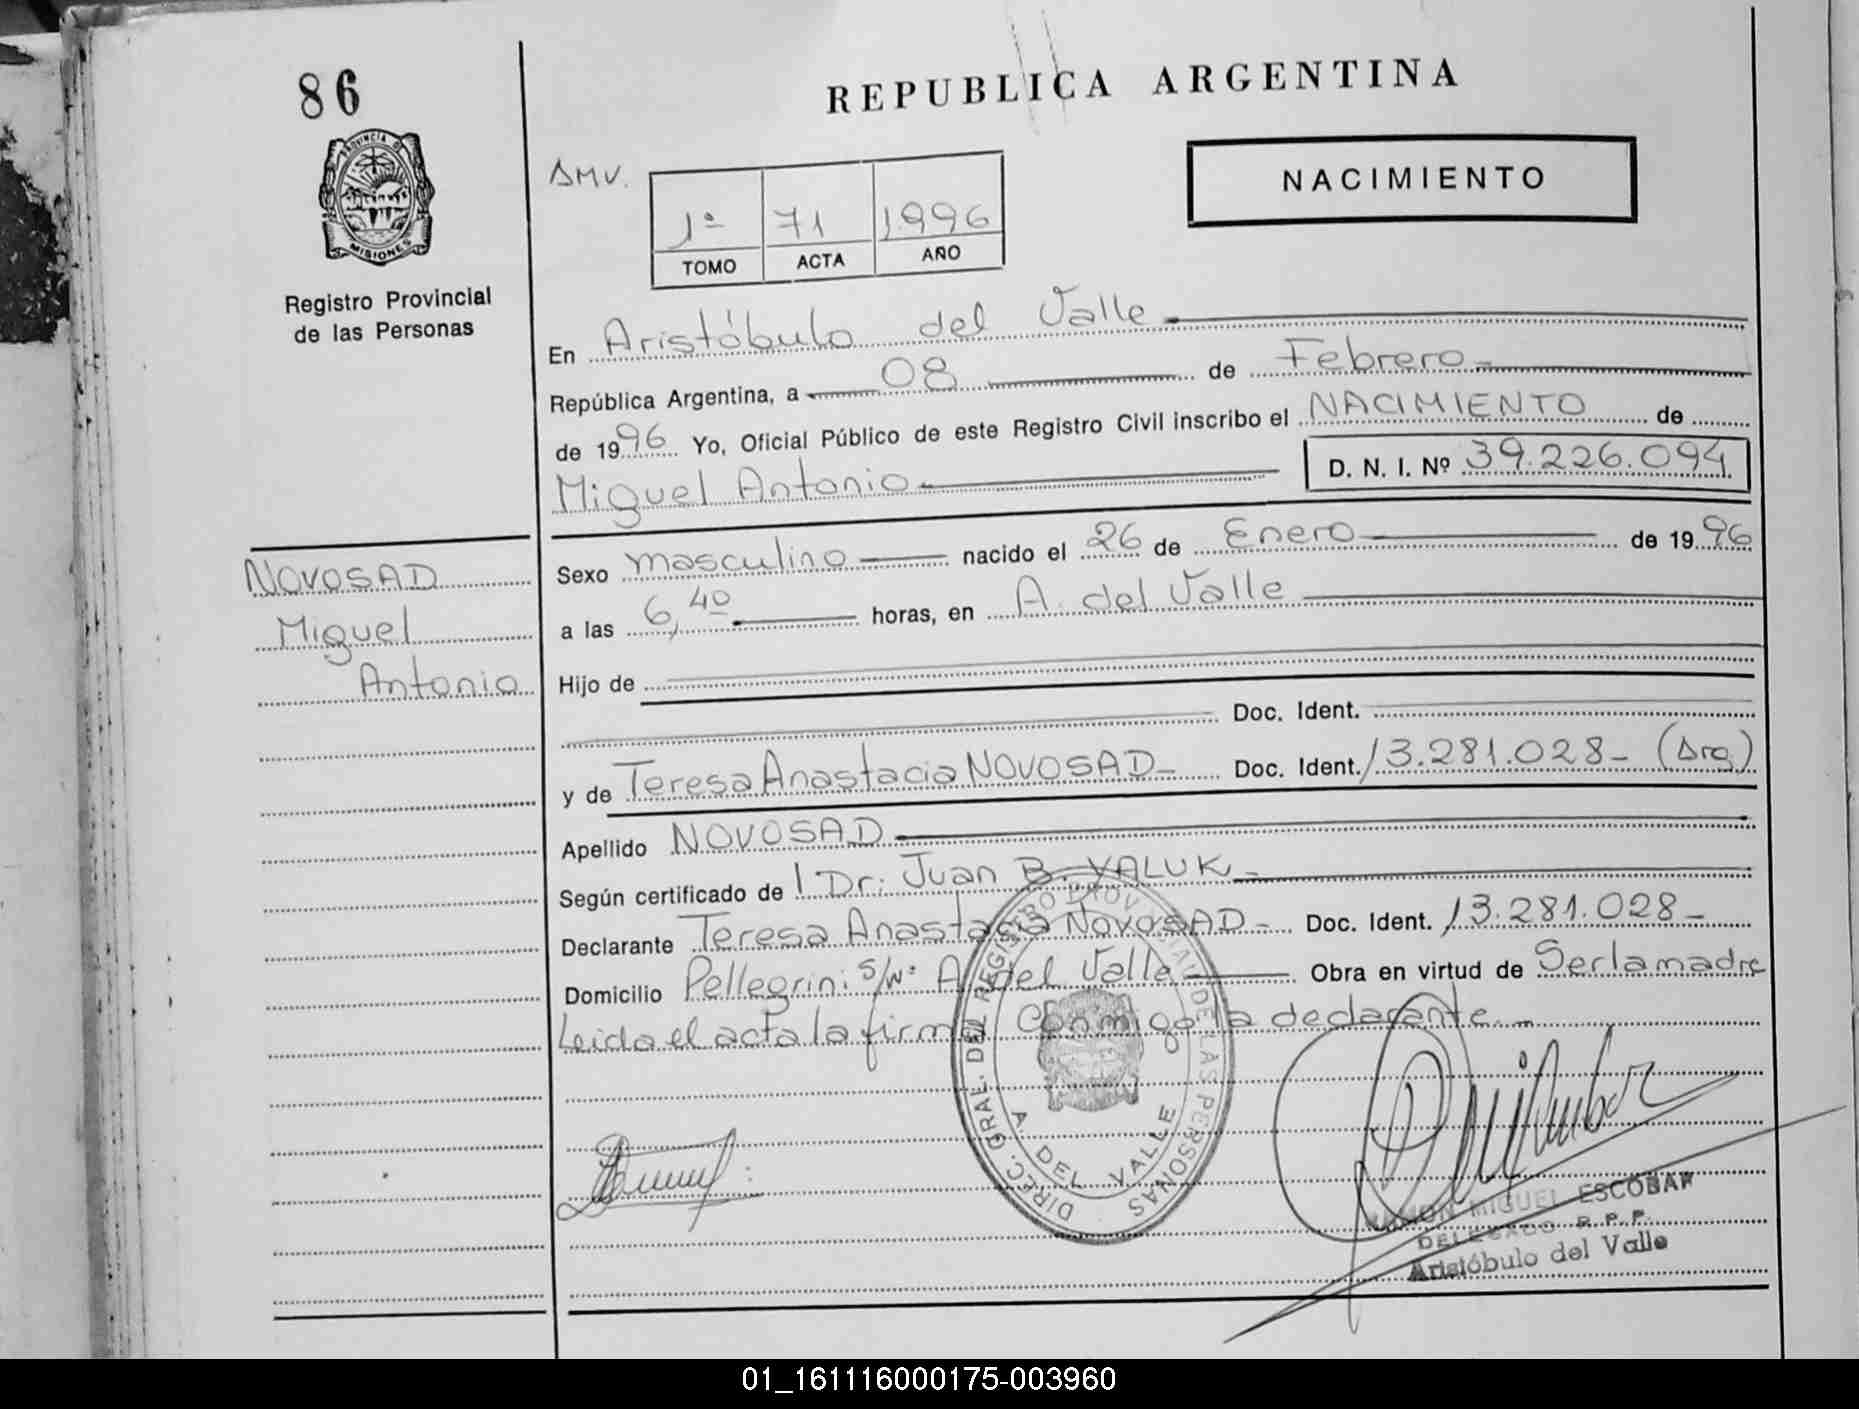 86
REPUBLICA ARGENTINA
PROVINCIA DE
MISIONES
Registro Provincial
de las Personas
AMV.
1ª 71 1.996
TOMO ACTA AÑO
NACIMIENTO
En Aristóbulo del Valle
República Argentina, a 08 de Febrero
de 1996 Yo, Oficial Público de este Registro Civil inscribo el NACIMIENTO de
Miguel Antonio D. N. I. Nº 39.226.094
NOVOSAD
Miguel
Antonio
Sexo masculino nacido el 26 de Enero de 1996
a las 6,40 horas, en A. del Valle
Hijo de
Doc. Ident.
y de Teresa Anastacia NOVOSAD Doc. Ident. 13.281.028- (Arg)
Apellido NOVOSAD
Según certificado de Dr. Juan B. YALUK
Declarante Teresa Anastacia NOVOSAD - Doc. Ident. 13.281.028-
Domicilio Pellegrini S/Nº A. del Valle Obra en virtud de Ser la madre
Leida el acta la firma conmigo la declarante.-
DIREC. GRAL. DEL REGISTRO PROVINCIAL DE LAS PERSONAS
A. DEL VALLE
RAMON MIGUEL ESCOBAR
DELEGADO R.P.P.
Aristóbulo del Valle
01_161116000175-003960